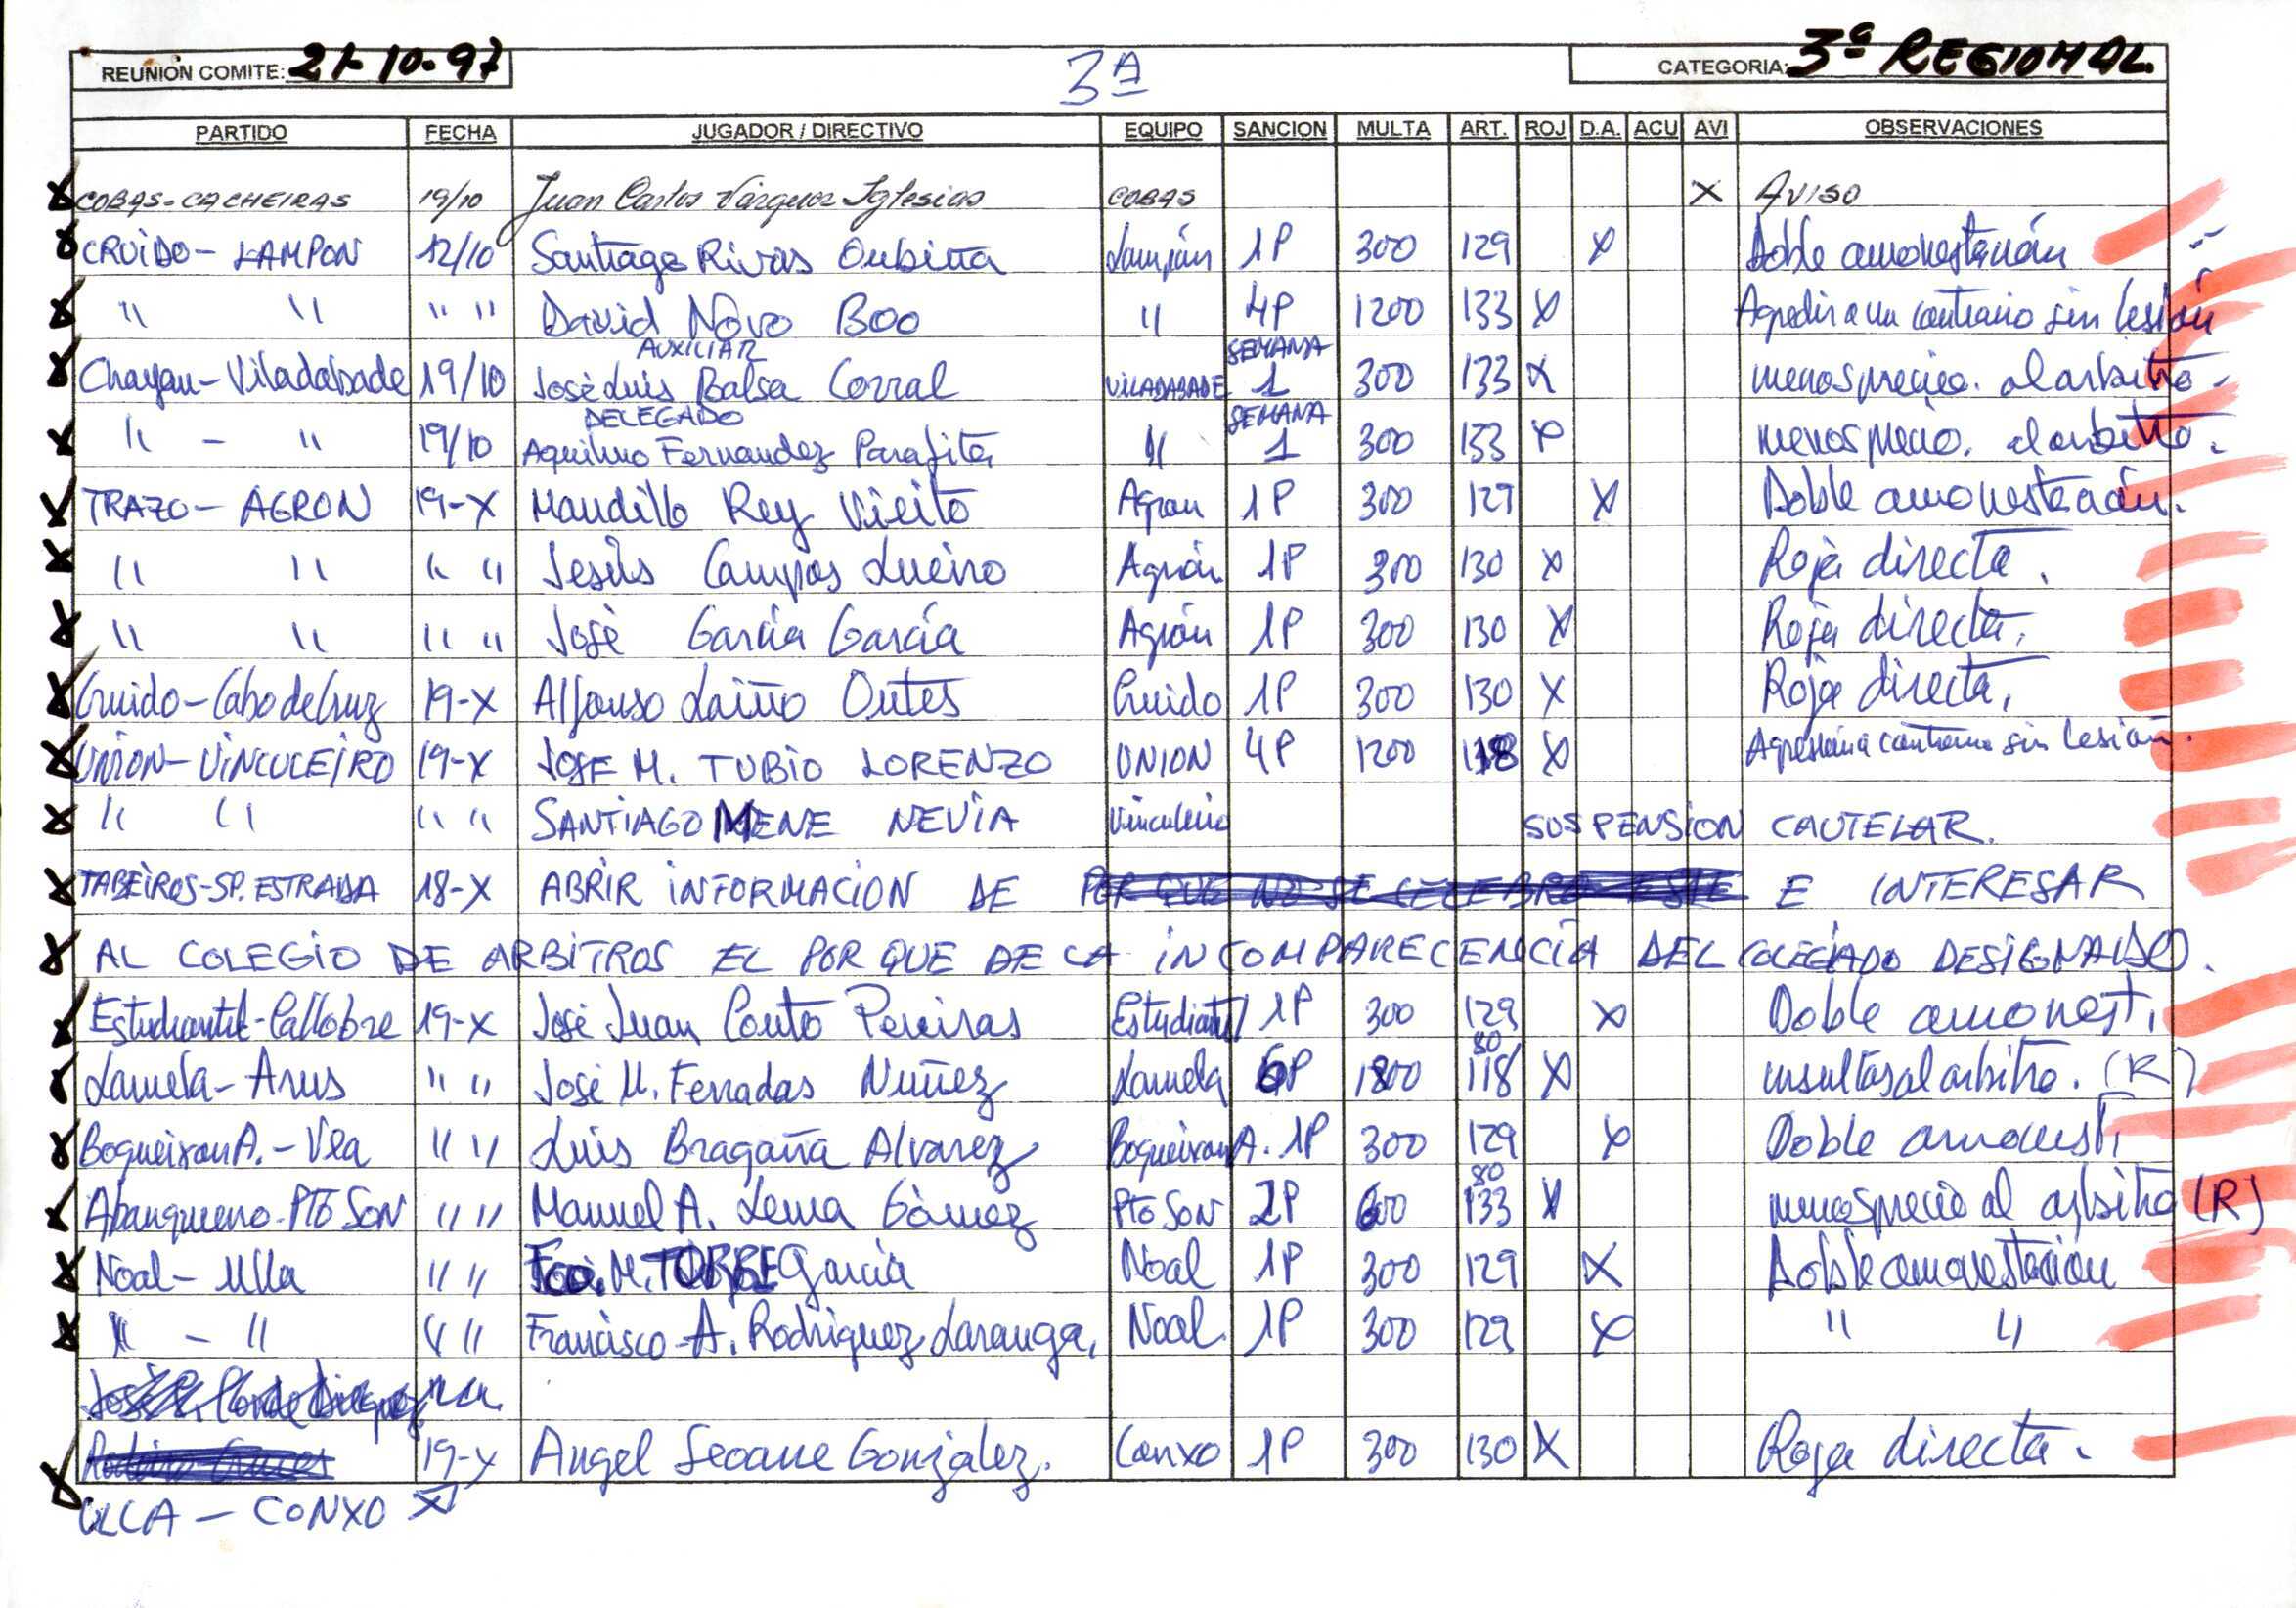 REUNIÓN COMITE: 21-10-97 3ª CATEGORIA: 3ª REGIONAL.
PARTIDO FECHA JUGADOR / DIRECTIVO EQUIPO SANCION MULTA ART. ROJ D.A. ACU AVI OBSERVACIONES
COBAS-CACHEIRAS 19/10 Juan Carlos Vázquez Iglesias COBAS X AVISO
CRUIDO - LAMPON 12/10 Santiago Rivas Oubiña Lampón 1P 300 129 X Doble amonestación
" " " " David Novo Boo " 4P 1200 133 X Agredir a un contrario sin lesión
AUXILIAR SEMANA
Chayan - Viladabade 19/10 José Luis Balsa Corral VILADABADE 1 300 133 X menosprecio al arbitro.
DELEGADO SEMANA
" - " 19/10 Aquilino Fernandez Parafita " 1 300 133 X menosprecio al arbitro.
TRAZO - AGRON 19-X Rey Vieito Agron 1P 300 129 X Doble amonestación.
" " " " Jesús Campos Lueiro Agrón 1P 300 130 X Roja directa.
" " " " José García García Agrón 1P 300 130 X Roja directa.
Cruido - Cabo de Cruz 19-X Alfonso Laiño Outes Cruido 1P 300 130 X Roja directa.
UNION - VINCULEIRO 19-X JOSE M. TUBIO LORENZO UNION 4P 1200 118 X Agresión a contrario sin lesión.
" " " " SANTIAGO MENE NEVIA Vinculeiro SUSPENSION CAUTELAR.
TABEIROS-SP. ESTRADA 18-X ABRIR INFORMACION DE E INTERESAR
AL COLEGIO DE ARBITROS EL POR QUE DE LA INCOMPARECENCIA DEL COLEGIADO DESIGNADO.
Estudiantil - Callobre 19-X José Juan Couto Pereiras Estudiantil 1P 300 129 X Doble amonest.
80
Lamela - Arns " " José M. Ferradas Nuñez Lamela 6P 1800 118 X insultos al arbitro. (R)
Boqueixon A. - Vea " " Luis Bragaña Alvarez Boqueixon A. 1P 300 129 X Doble amonest.
80
Abanqueiro - Pto SON " " Manuel A. Lema Gómez Pto SON 2P 600 133 X menosprecio al arbitro (R)
Noal - Ulla " " Fco. M. TORRE García Noal 1P 300 129 X Doble amonestación
" - " " " Francisco A. Rodriguez Laranga. Noal 1P 300 129 X " "
19-X Angel Seoane González. Conxo 1P 300 130 X Roja directa.
ULLA - CONXO X